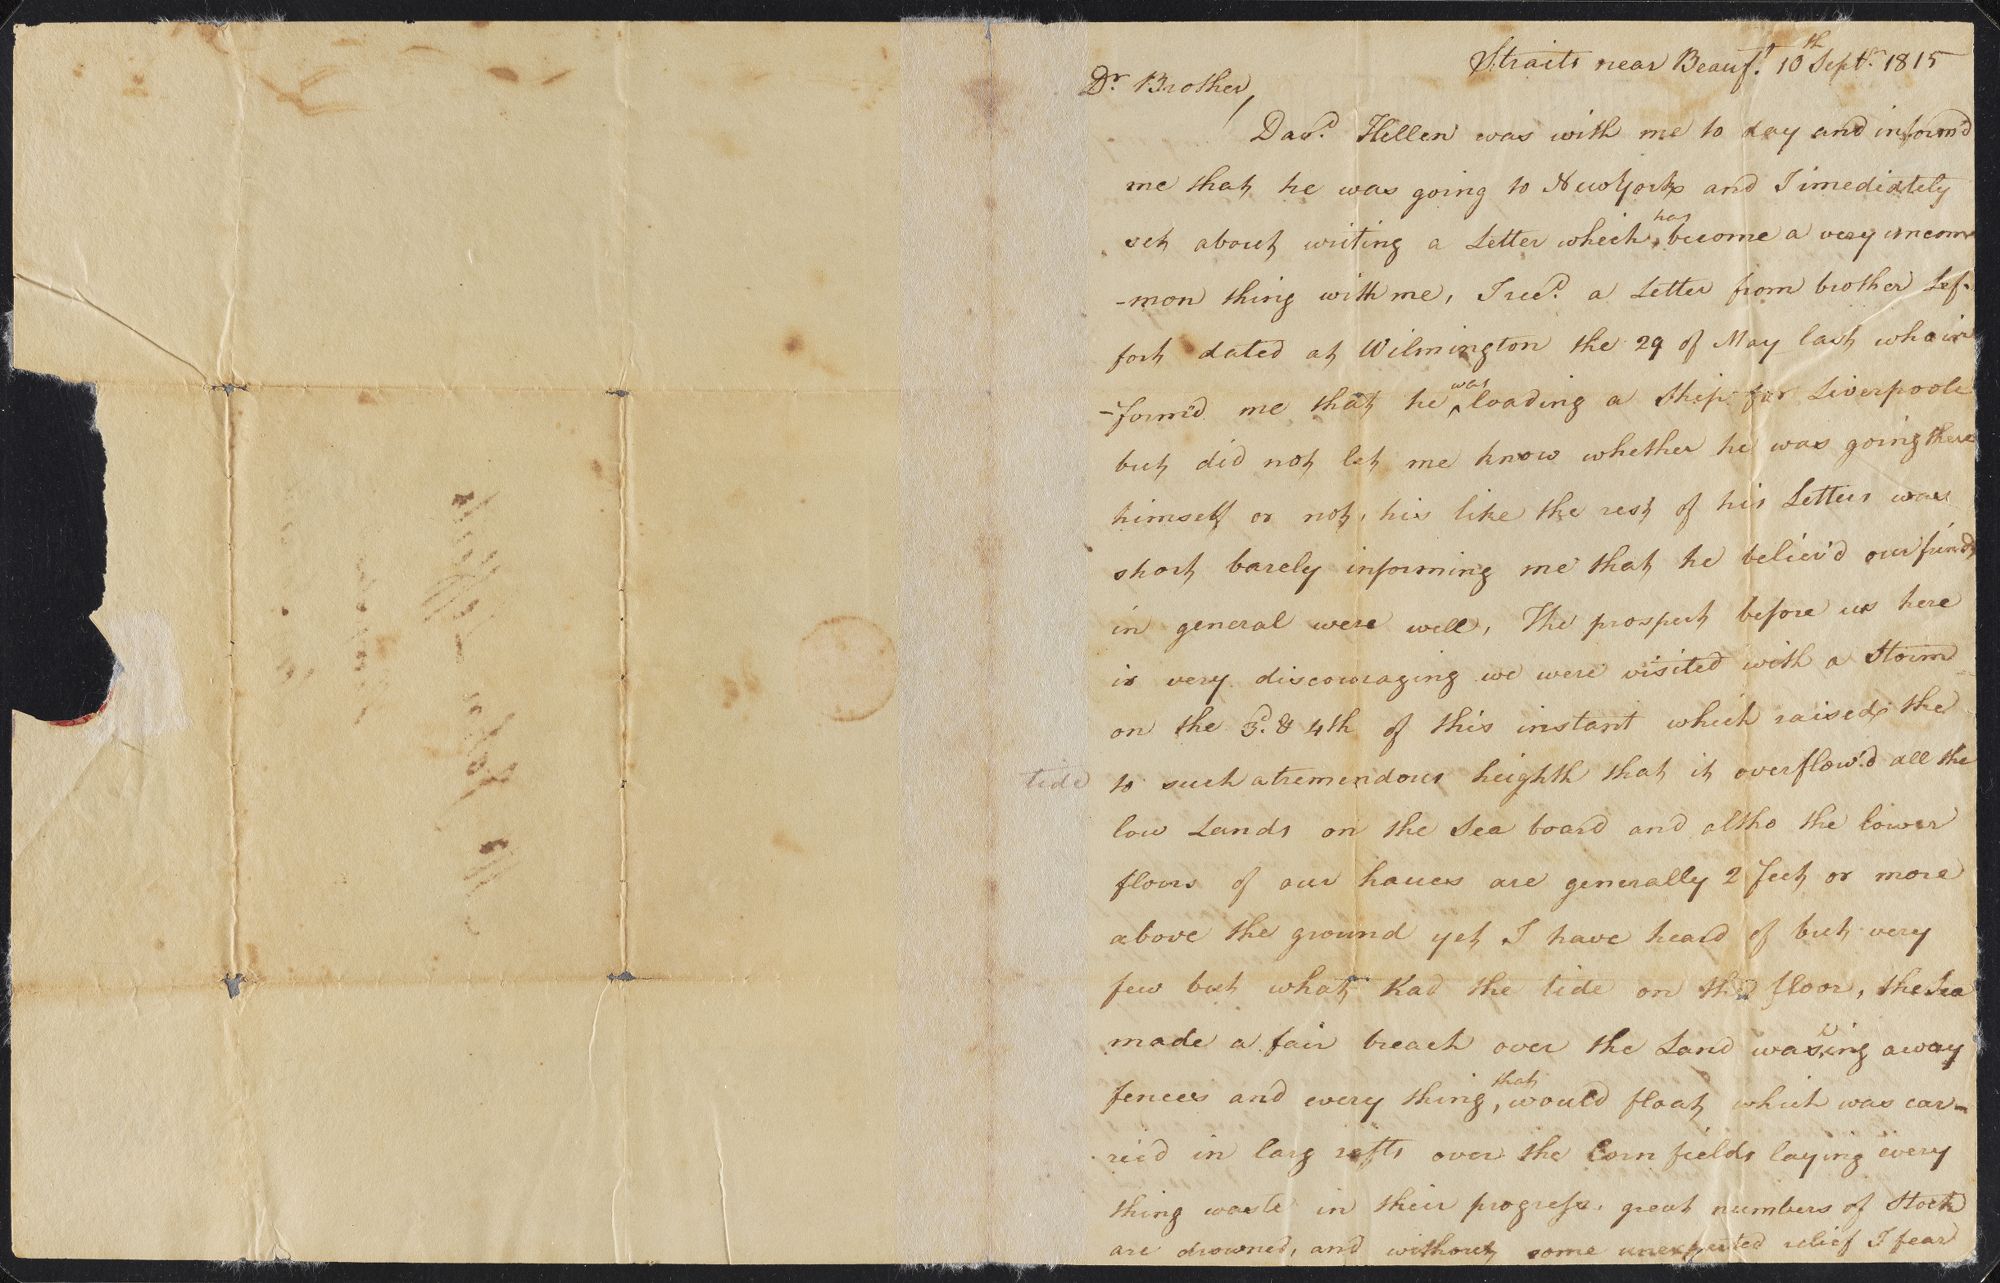 Straits near Beauf.t 10th Sept.r 1815
Dr Brother,
Dav.d Hellen was with me to day and inform'd
me that he was going to New York and I imediately
set about writing a Letter which has become a very uncom
-mon thing with me, I rec.d a Letter from brother Lef-
fort dated at Wilmington the 29 of May last who in
-form'd me that he was loading a Ship for Liverpoole
but did not let me know whether he was going there
himself or not, his like the rest of his Letters was
short barely informing me that he believ'd our friends
in general were well, The prospect before us here
is very discouraging we were visited with a Storm
on the 3.d & 4th of this instant which raised the
tide to such a tremendous heighth that it overflow'd all the
low Lands on the Sea board and altho the lower
floors of our houses are generally 2 feet or more
above the ground yet I have heard of but very
few but what had the tide on the floor, the Sea
made a fair breach over the Land washing away
fences and every thing that would float which was car-
ried in larg rafts over the Corn fields laying every
thing waste in their progress, great numbers of Stock
are drowned, and without some unexpected relief I fear